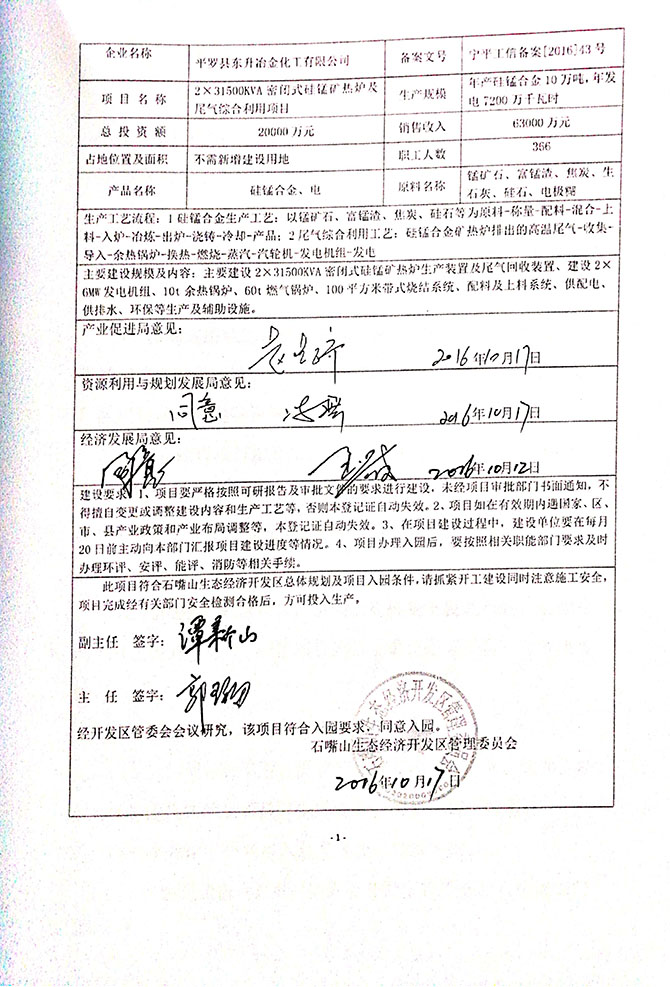 企业名称 平罗县东升冶金化工有限公司 备案文号 宁平工信备案[2016]43号
项目名称 2×31500KVA密闭式硅锰矿热炉及尾气综合利用项目 生产规模 年产硅锰合金10万吨，年发电7200万千瓦时
总投资额 20000万元 销售收入 63000万元
占地位置及面积 不需新增建设用地 职工人数 366
产品名称 硅锰合金、电 原料名称 锰矿石、富锰渣、焦炭、生石灰、硅石、电极糊
生产工艺流程：1硅锰合金生产工艺：以锰矿石、富锰渣、焦炭、硅石等为原料-称量-配料-混合-上
料-入炉-冶炼-出炉-浇铸-冷却-产品；2尾气综合利用工艺：硅锰合金矿热炉排出的高温尾气-收集-
导入-余热锅炉-换热-燃烧-蒸汽-汽轮机-发电机组-发电
主要建设规模及内容：主要建设2×31500KVA密闭式硅锰矿热炉生产装置及尾气回收装置、建设2×
6MW发电机组、10t余热锅炉、60t燃气锅炉、100平方米带式烧结系统、配料及上料系统、供配电、
供排水、环保等生产及辅助设施。
产业促进局意见：
2016年10月17日
资源利用与规划发展局意见：
同意 2016年10月17日
经济发展局意见：
2016年10月12日
建设要求：1、项目要严格按照可研报告及审批文件的要求进行建设，未经项目审批部门书面通知，不
得擅自变更或调整建设内容和生产工艺等，否则本登记证自动失效。2、项目如在有效期内遇国家、区、
市、县产业政策和产业布局调整等，本登记证自动失效。3、在项目建设过程中，建设单位要在每月
20日前主动向本部门汇报项目建设进度等情况。4、项目办理入园后，要按照相关职能部门要求及时
办理环评、安评、能评、消防等相关手续。
此项目符合石嘴山生态经济开发区总体规划及项目入园条件，请抓紧开工建设同时注意施工安全，
项目完成经有关部门安全检测合格后，方可投入生产，
副主任 签字：谭新山
主 任 签字：
经开发区管委会会议研究，该项目符合入园要求，同意入园。
石嘴山生态经济开发区管理委员会
2016年10月17日
-1-